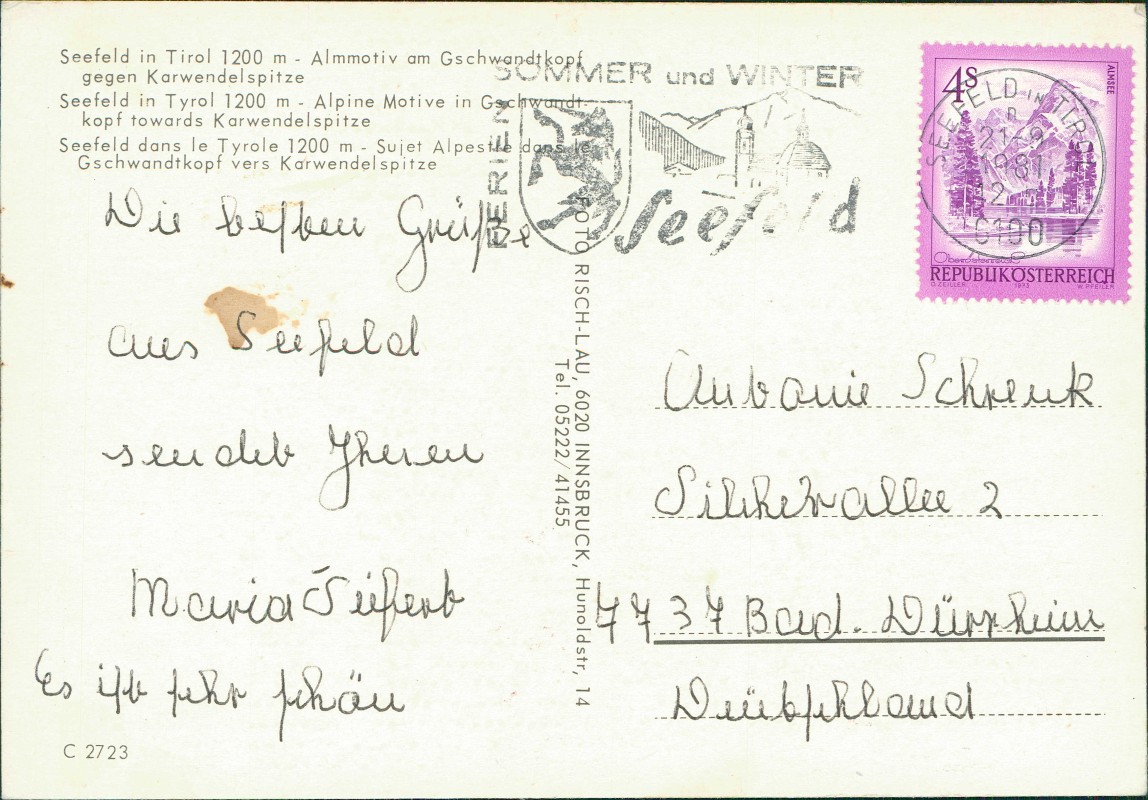 Seefeld in Tirol 1200 m - Almmotiv am Gschwandtkopf
gegen Karwendelspitze
Seefeld in Tyrol 1200 m - Alpine Motive in Gschwandt-
kopf towards Karwendelspitze
Seefeld dans le Tyrole 1200 m - Sujet Alpestre dans le
Gschwandtkopf vers Karwendelspitze
Die besten Grüße
aus Seefeld
sendet Iheren
Maria Seifert
Es ist sehr schön
C 2723
FERIEN
SOMMER und WINTER
Seefeld
FOTO RISCH-LAU, 6020 INNSBRUCK, Hunoldstr, 14
Tel. 05222/41455
4S
ALMSEE
SEEFELD IN TIROL
21-9
1981
6100
REPUBLIK ÖSTERREICH
O. ZEILLER 1973 W. PFEILER
Antonie Schrenk
2
7737 Bad. Dürrheim
Deütschland